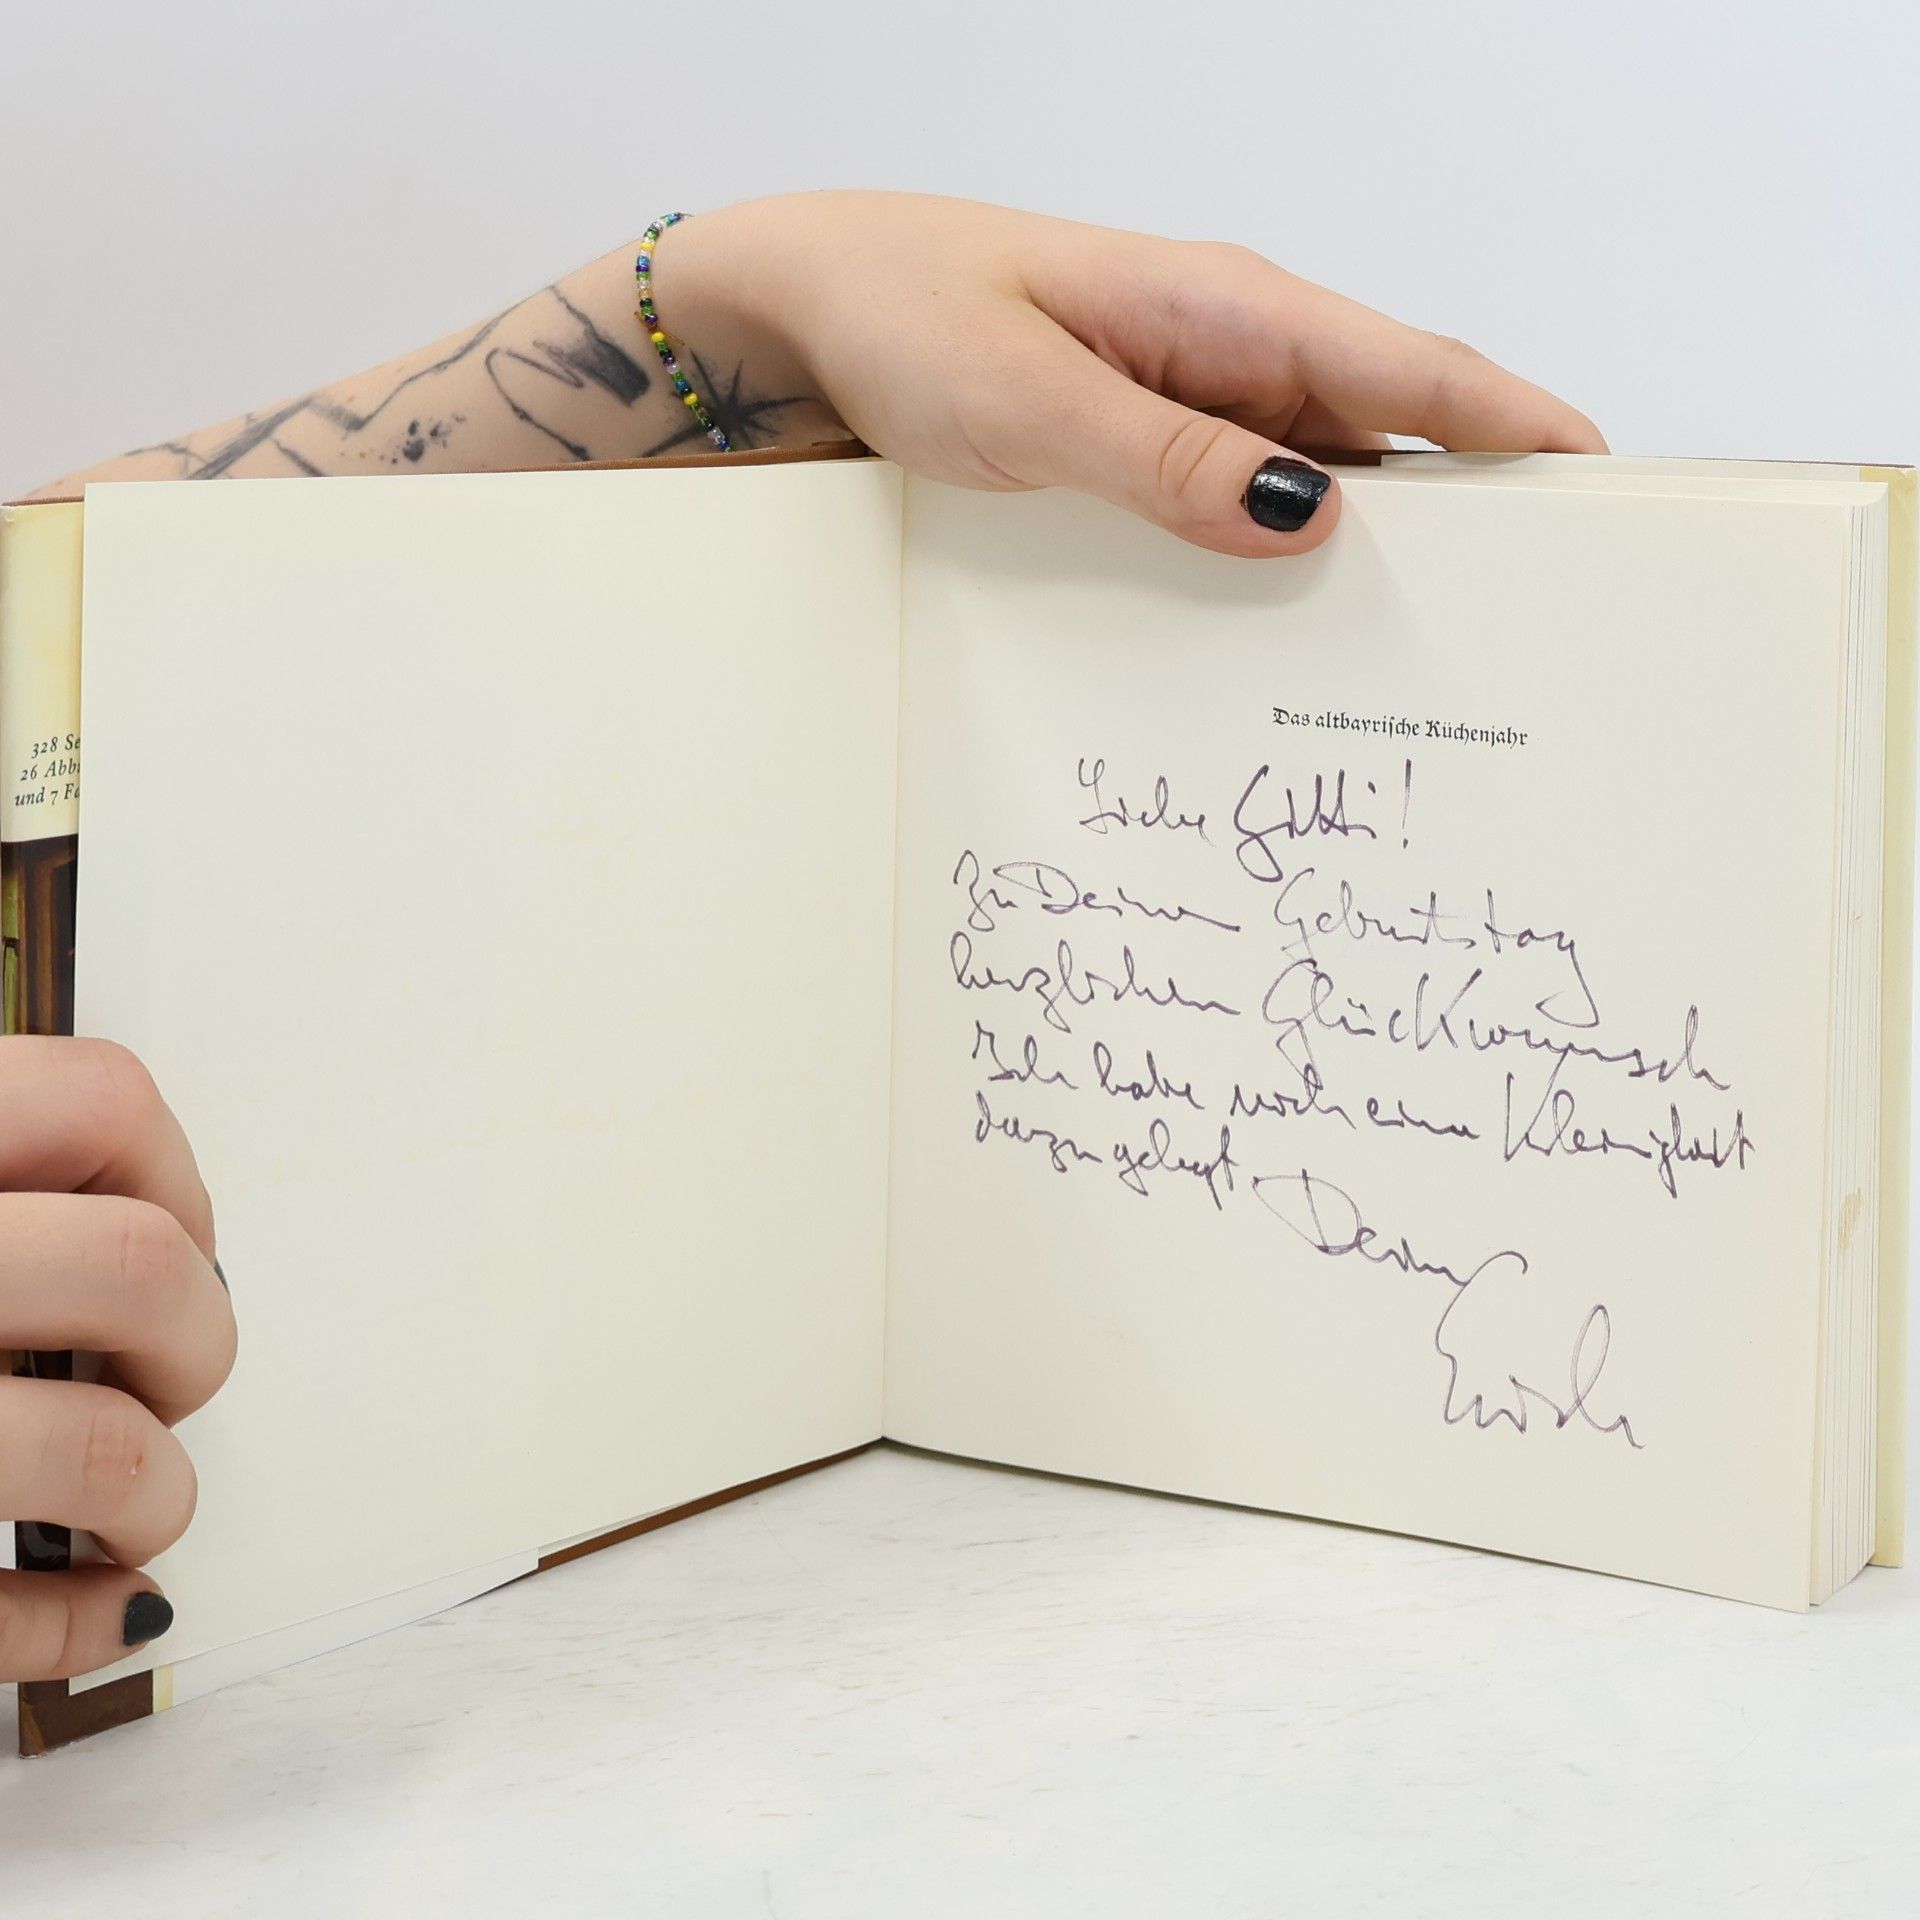 328 Se
26 Abb
und 7 Fa
Das altbayrische Küchenjahr
Liebe Gitti!
Zu Deinem Geburtstag
herzlichen Glückwunsch
Ich habe noch eine Kleinigkeit
dazu gelegt. Deine